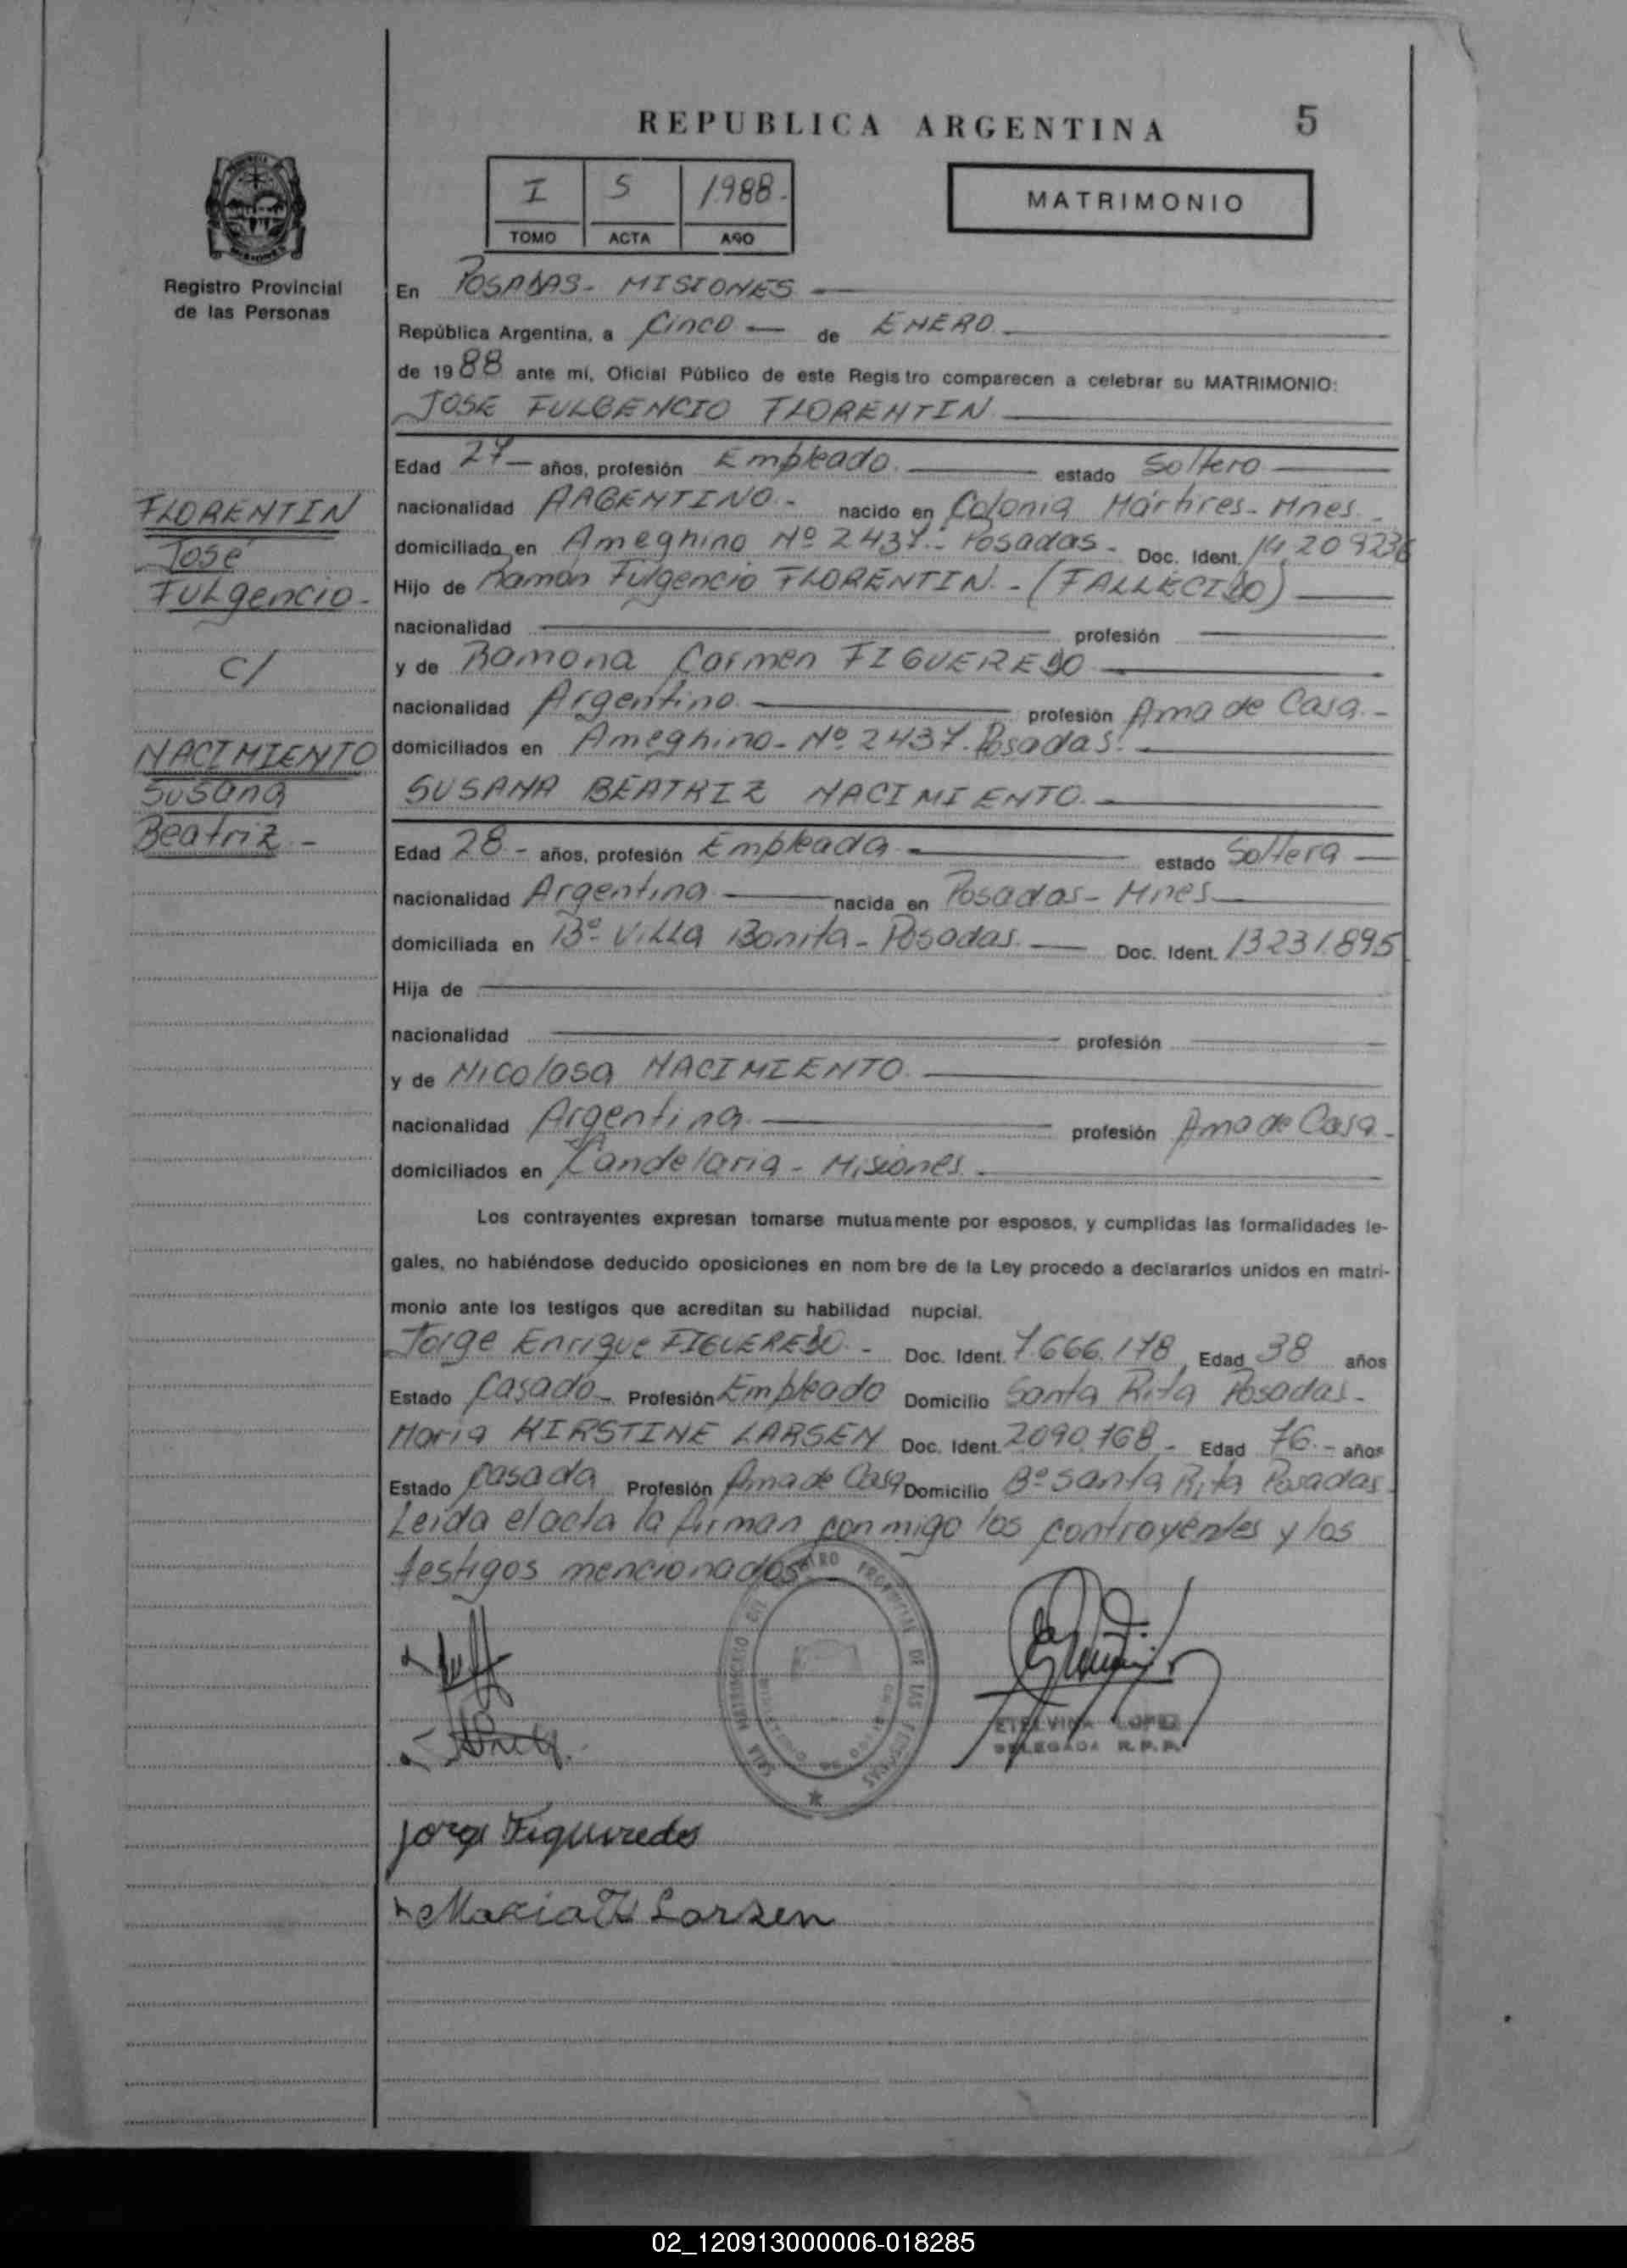 REPUBLICA ARGENTINA 5
I 5 1988.
TOMO ACTA AÑO
MATRIMONIO
Registro Provincial
de las Personas
En POSADAS - MISIONES
República Argentina, a Cinco de ENERO
de 1988 ante mí, Oficial Público de este Registro comparecen a celebrar su MATRIMONIO:
JOSE FULGENCIO FLORENTIN
Edad 27 años, profesión Empleado. estado Soltero
nacionalidad ARGENTINO - nacido en Colonia Mártires - Mnes.
domiciliado en Ameghino Nº 2437 - Posadas - Doc. Ident. 14.209236
Hijo de Ramón Fulgencio FLORENTIN - (FALLECIDO)
nacionalidad profesión
y de Ramona Carmen FIGUEREDO
nacionalidad Argentina profesión Ama de Casa -
domiciliados en Ameghino - Nº 2437. Posadas.
SUSANA BEATRIZ NACIMIENTO.
FLORENTIN
José
FULgencio -
c/
NACIMIENTO
Susana
Beatriz -
Edad 28 - años, profesión Empleada estado Soltera
nacionalidad Argentina nacida en Posadas - Mnes
domiciliada en Bº Villa Bonita - Posadas Doc. Ident. 13231.895
Hija de
nacionalidad profesión
y de Nicolasa NACIMIENTO
nacionalidad Argentina profesión Ama de Casa -
domiciliados en Candelaria - Misiones
Los contrayentes expresan tomarse mutuamente por esposos, y cumplidas las formalidades le-
gales, no habiéndose deducido oposiciones en nom bre de la Ley procedo a declararlos unidos en matri-
monio ante los testigos que acreditan su habilidad nupcial.
Jorge Enrique FIGUEREDO - Doc. Ident. 7.666.178, Edad 38 años
Estado Casado - Profesión Empleado Domicilio Santa Rita Posadas -
María KIRSTINE LARSEN Doc. Ident. 2090.768 - Edad 76 - años
Estado Casada Profesión Ama de Casa Domicilio Bº Santa Rita Posadas
Leida el acta la firman conmigo los contrayentes y los
testigos mencionados
ETELVINA LOPEZ
DELEGADA R.P.P.
Jorge Figueredo
Maria K Larsen
02_120913000006-018285